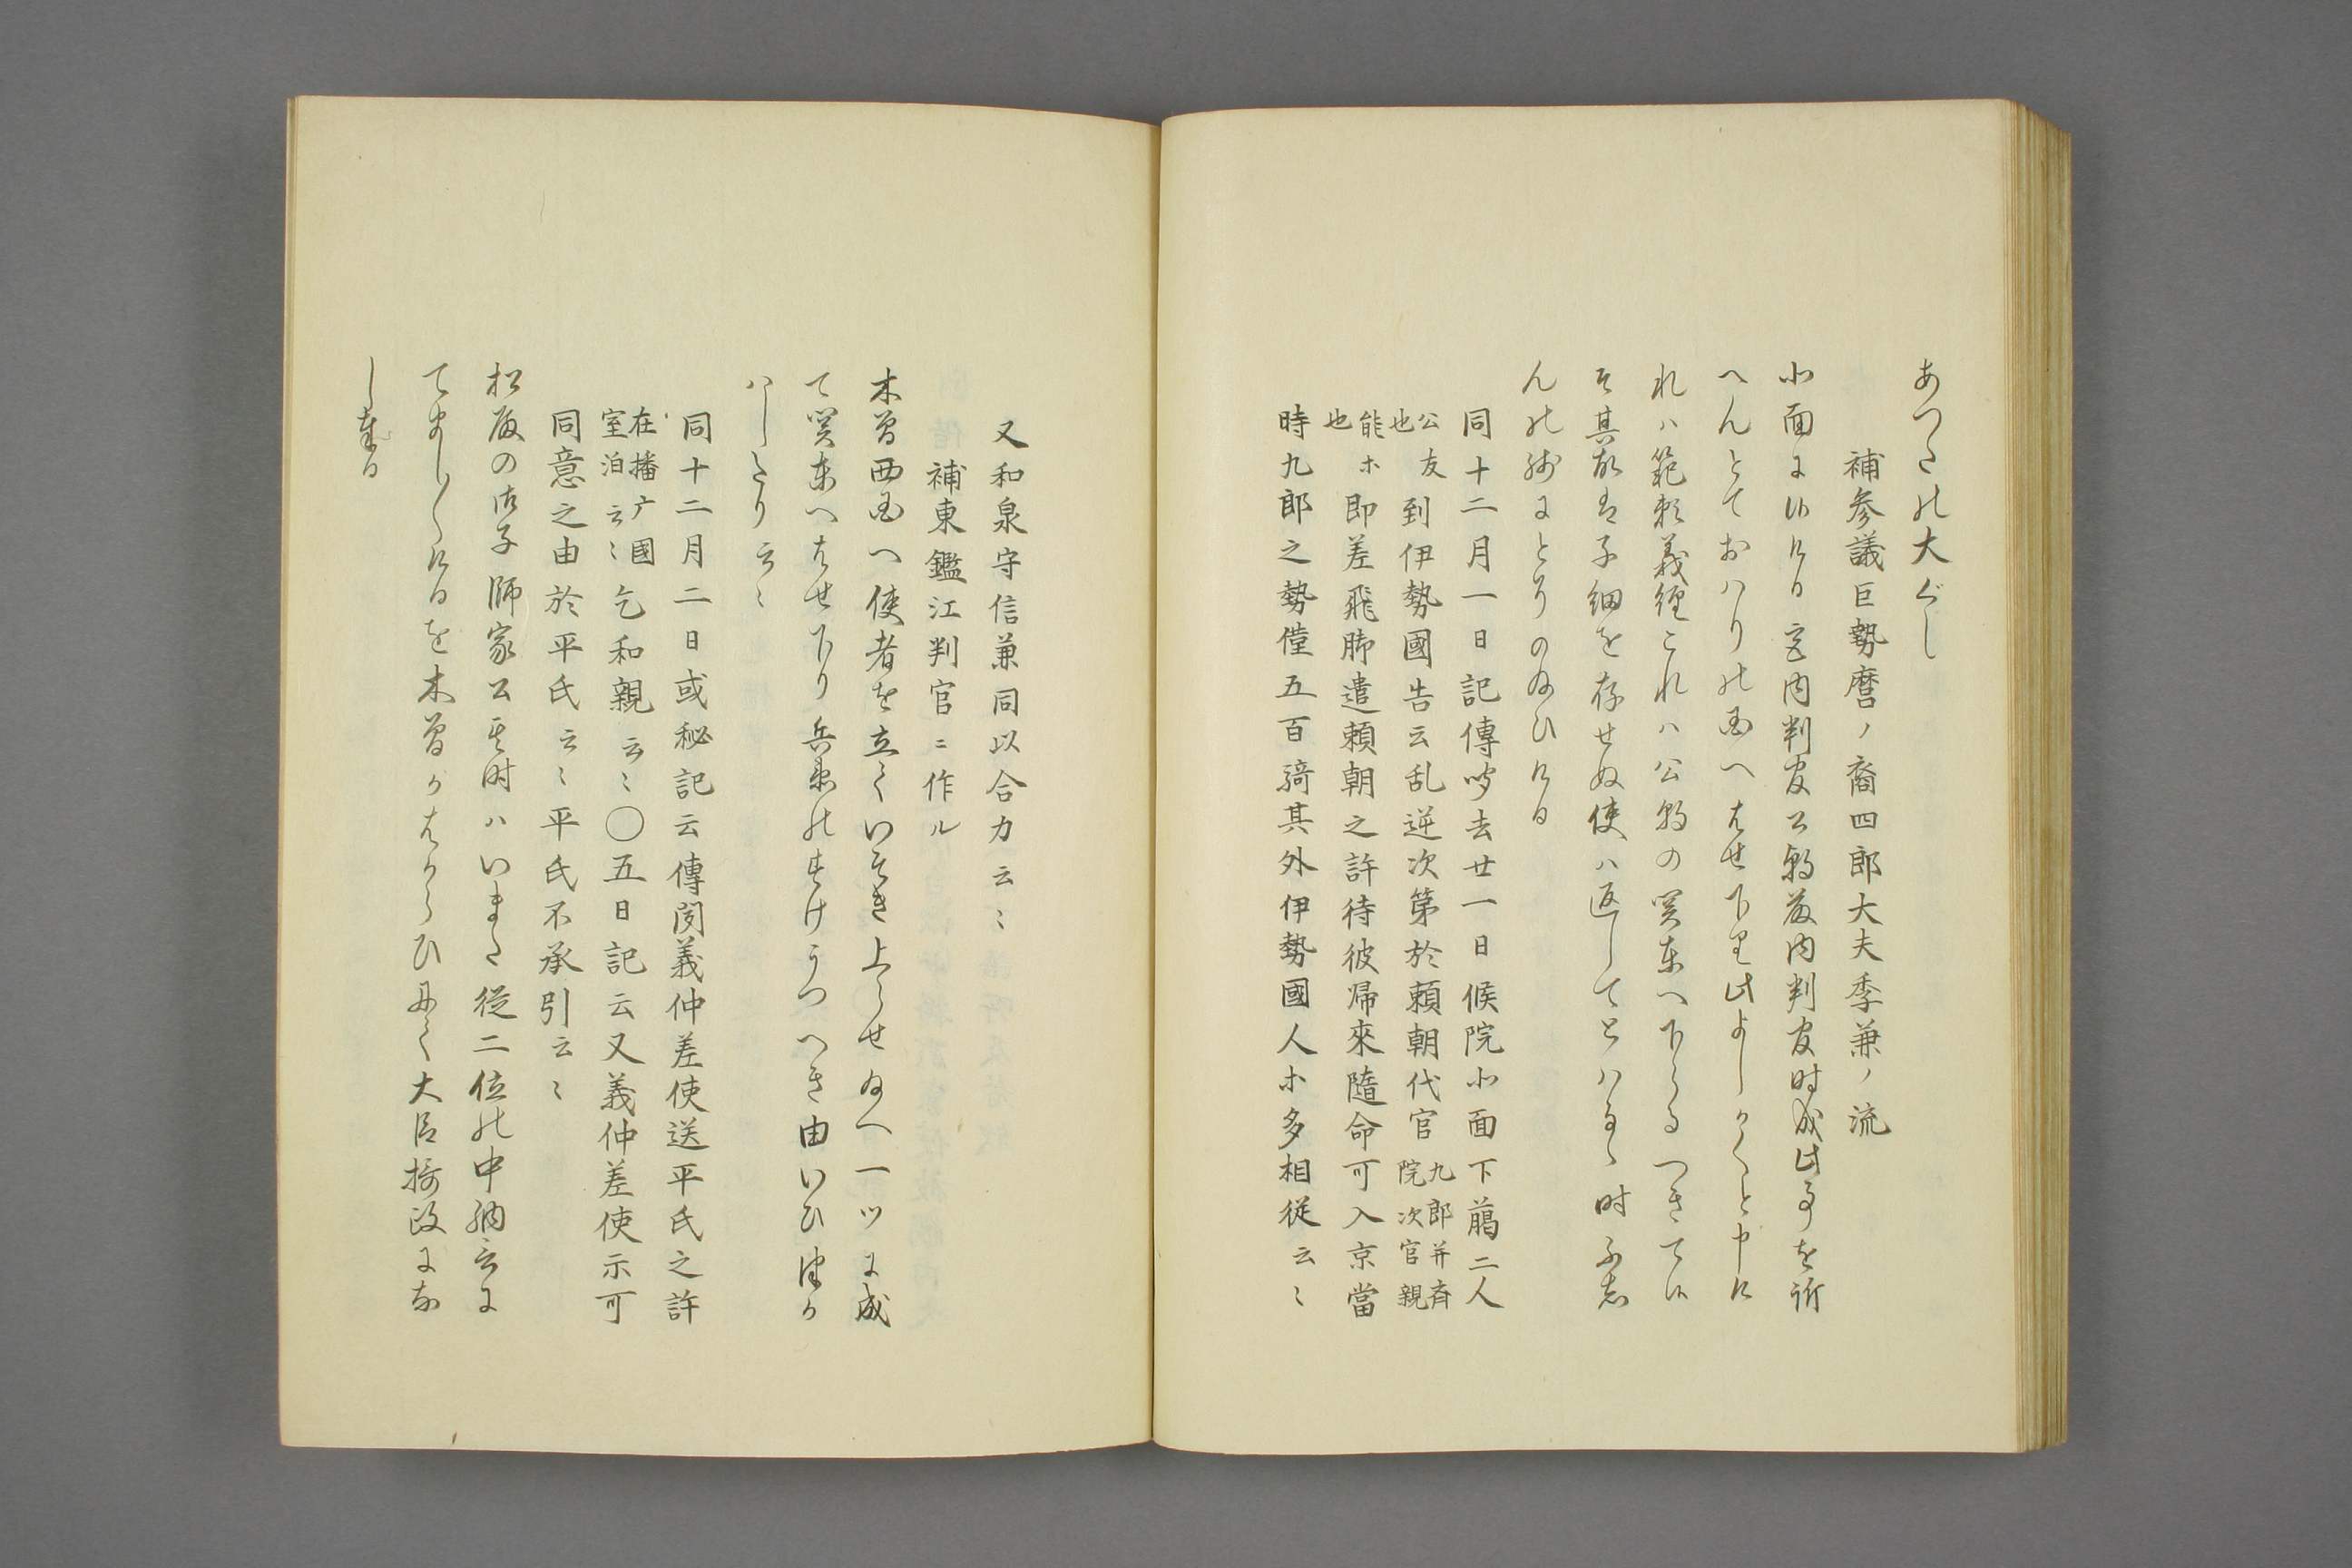 あつたの大ぐし
補参議巨勢麿ノ裔四郎大夫季兼ノ流
北面に候ける宮内判官公朝藤内判官時成此事を訴
へんとておハりの国へはせ下る此よしかくと申け
れハ範頼義経これハ公朝の関東へ下らるへきて候
そ其故は子細を存せぬ使ハ返して とハるゝ時ふしん
んの残にとのたまひける
同十二月一日記傳聞去廿一日候院北面下臈二人
公友也 到伊勢國告云乱逆次第於頼朝代官 九郎并斉院次官親
能ホ也 即差飛脚遣頼朝之許待彼帰來隨命可入京當
時九郎之勢僅五百騎其外伊勢國人ホ多相従云〻
又和泉守信兼同以合力云〻
補東鑑江判官ニ作ル
木曽西国へ使者を立ていそき上らせ給へ一ツに成
て関東へはせ下り兵衛のすけうつへき由いひつか
ハしたり云〻
同十二月二日或秘記云傳聞義仲差使送平氏之許
在播广國室泊云〻 乞和親云〻〇五日記云又義仲差使示可
同意之由於平氏云〻平氏不承引云〻
松殿の御子師家公其時ハいまた従二位の中納言に
てましましけるを木曽かはからひにて大臣摂政にな
し奉る